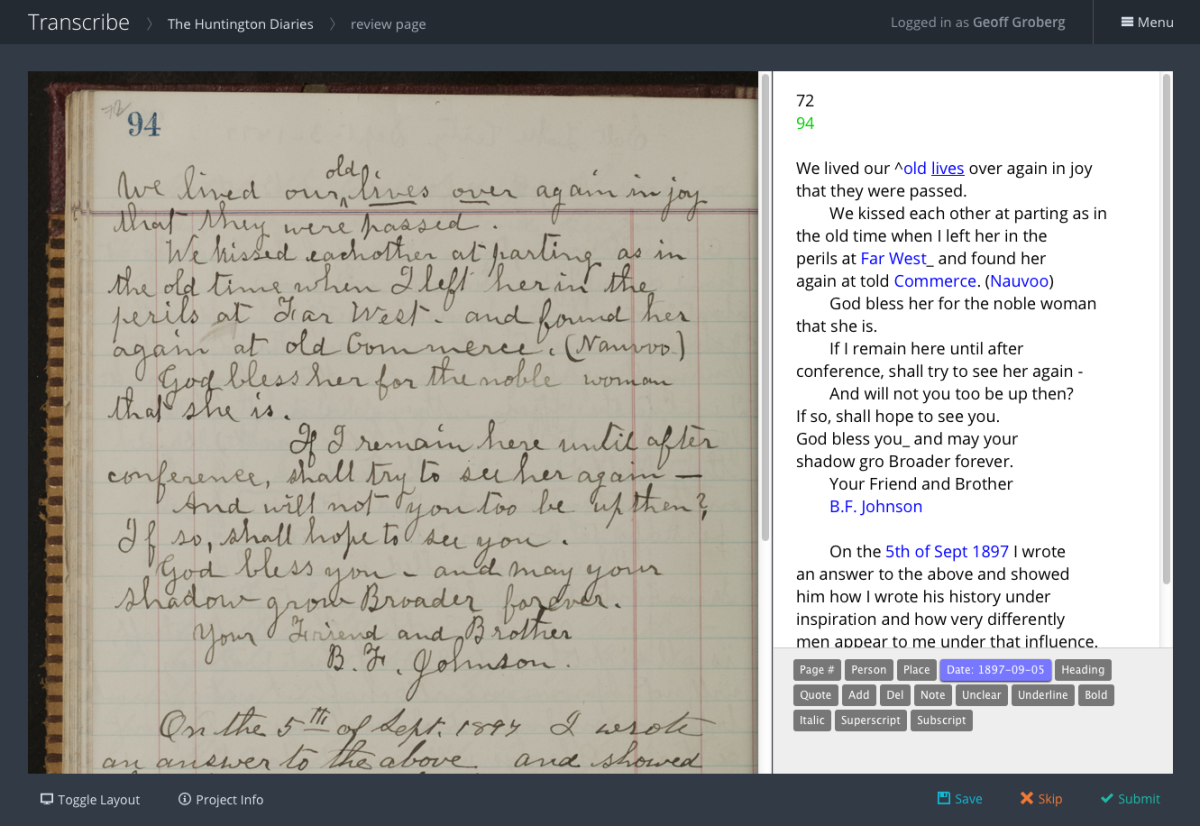 Transcribe
The Huntington Diaries
review page
Logged in as Geoff Groberg
Menu
72
94
We lived our ^old lives over again in joy
that they were passed.
We kissed eachother at parting as in
the old time when I left her in the
perils at Far West - and found her
again at old Commerce. (Nauvoo.)
God bless her for the noble woman
that she is.
If I remain here until after
conference, shall try to see her again —
And will not you too be up then?
If so, shall hope to see you.
God bless you - and may your
shadow grow Broader forever.
Your Friend and Brother
B. F. Johnson.
On the 5th of Sept. 1897 I wrote
an answer to the above and showed
72
94
We lived our ^old lives over again in joy
that they were passed.
We kissed each other at parting as in
the old time when I left her in the
perils at Far West_ and found her
again at told Commerce. (Nauvoo)
God bless her for the noble woman
that she is.
If I remain here until after
conference, shall try to see her again -
And will not you too be up then?
If so, shall hope to see you.
God bless you_ and may your
shadow gro Broader forever.
Your Friend and Brother
B.F. Johnson
On the 5th of Sept 1897 I wrote
an answer to the above and showed
him how I wrote his history under
inspiration and how very differently
men appear to me under that influence.
Page # Person Place Date: 1897-09-05 Heading
Quote Add Del Note Unclear Underline Bold
Italic Superscript Subscript
Toggle Layout Project Info Save Skip Submit